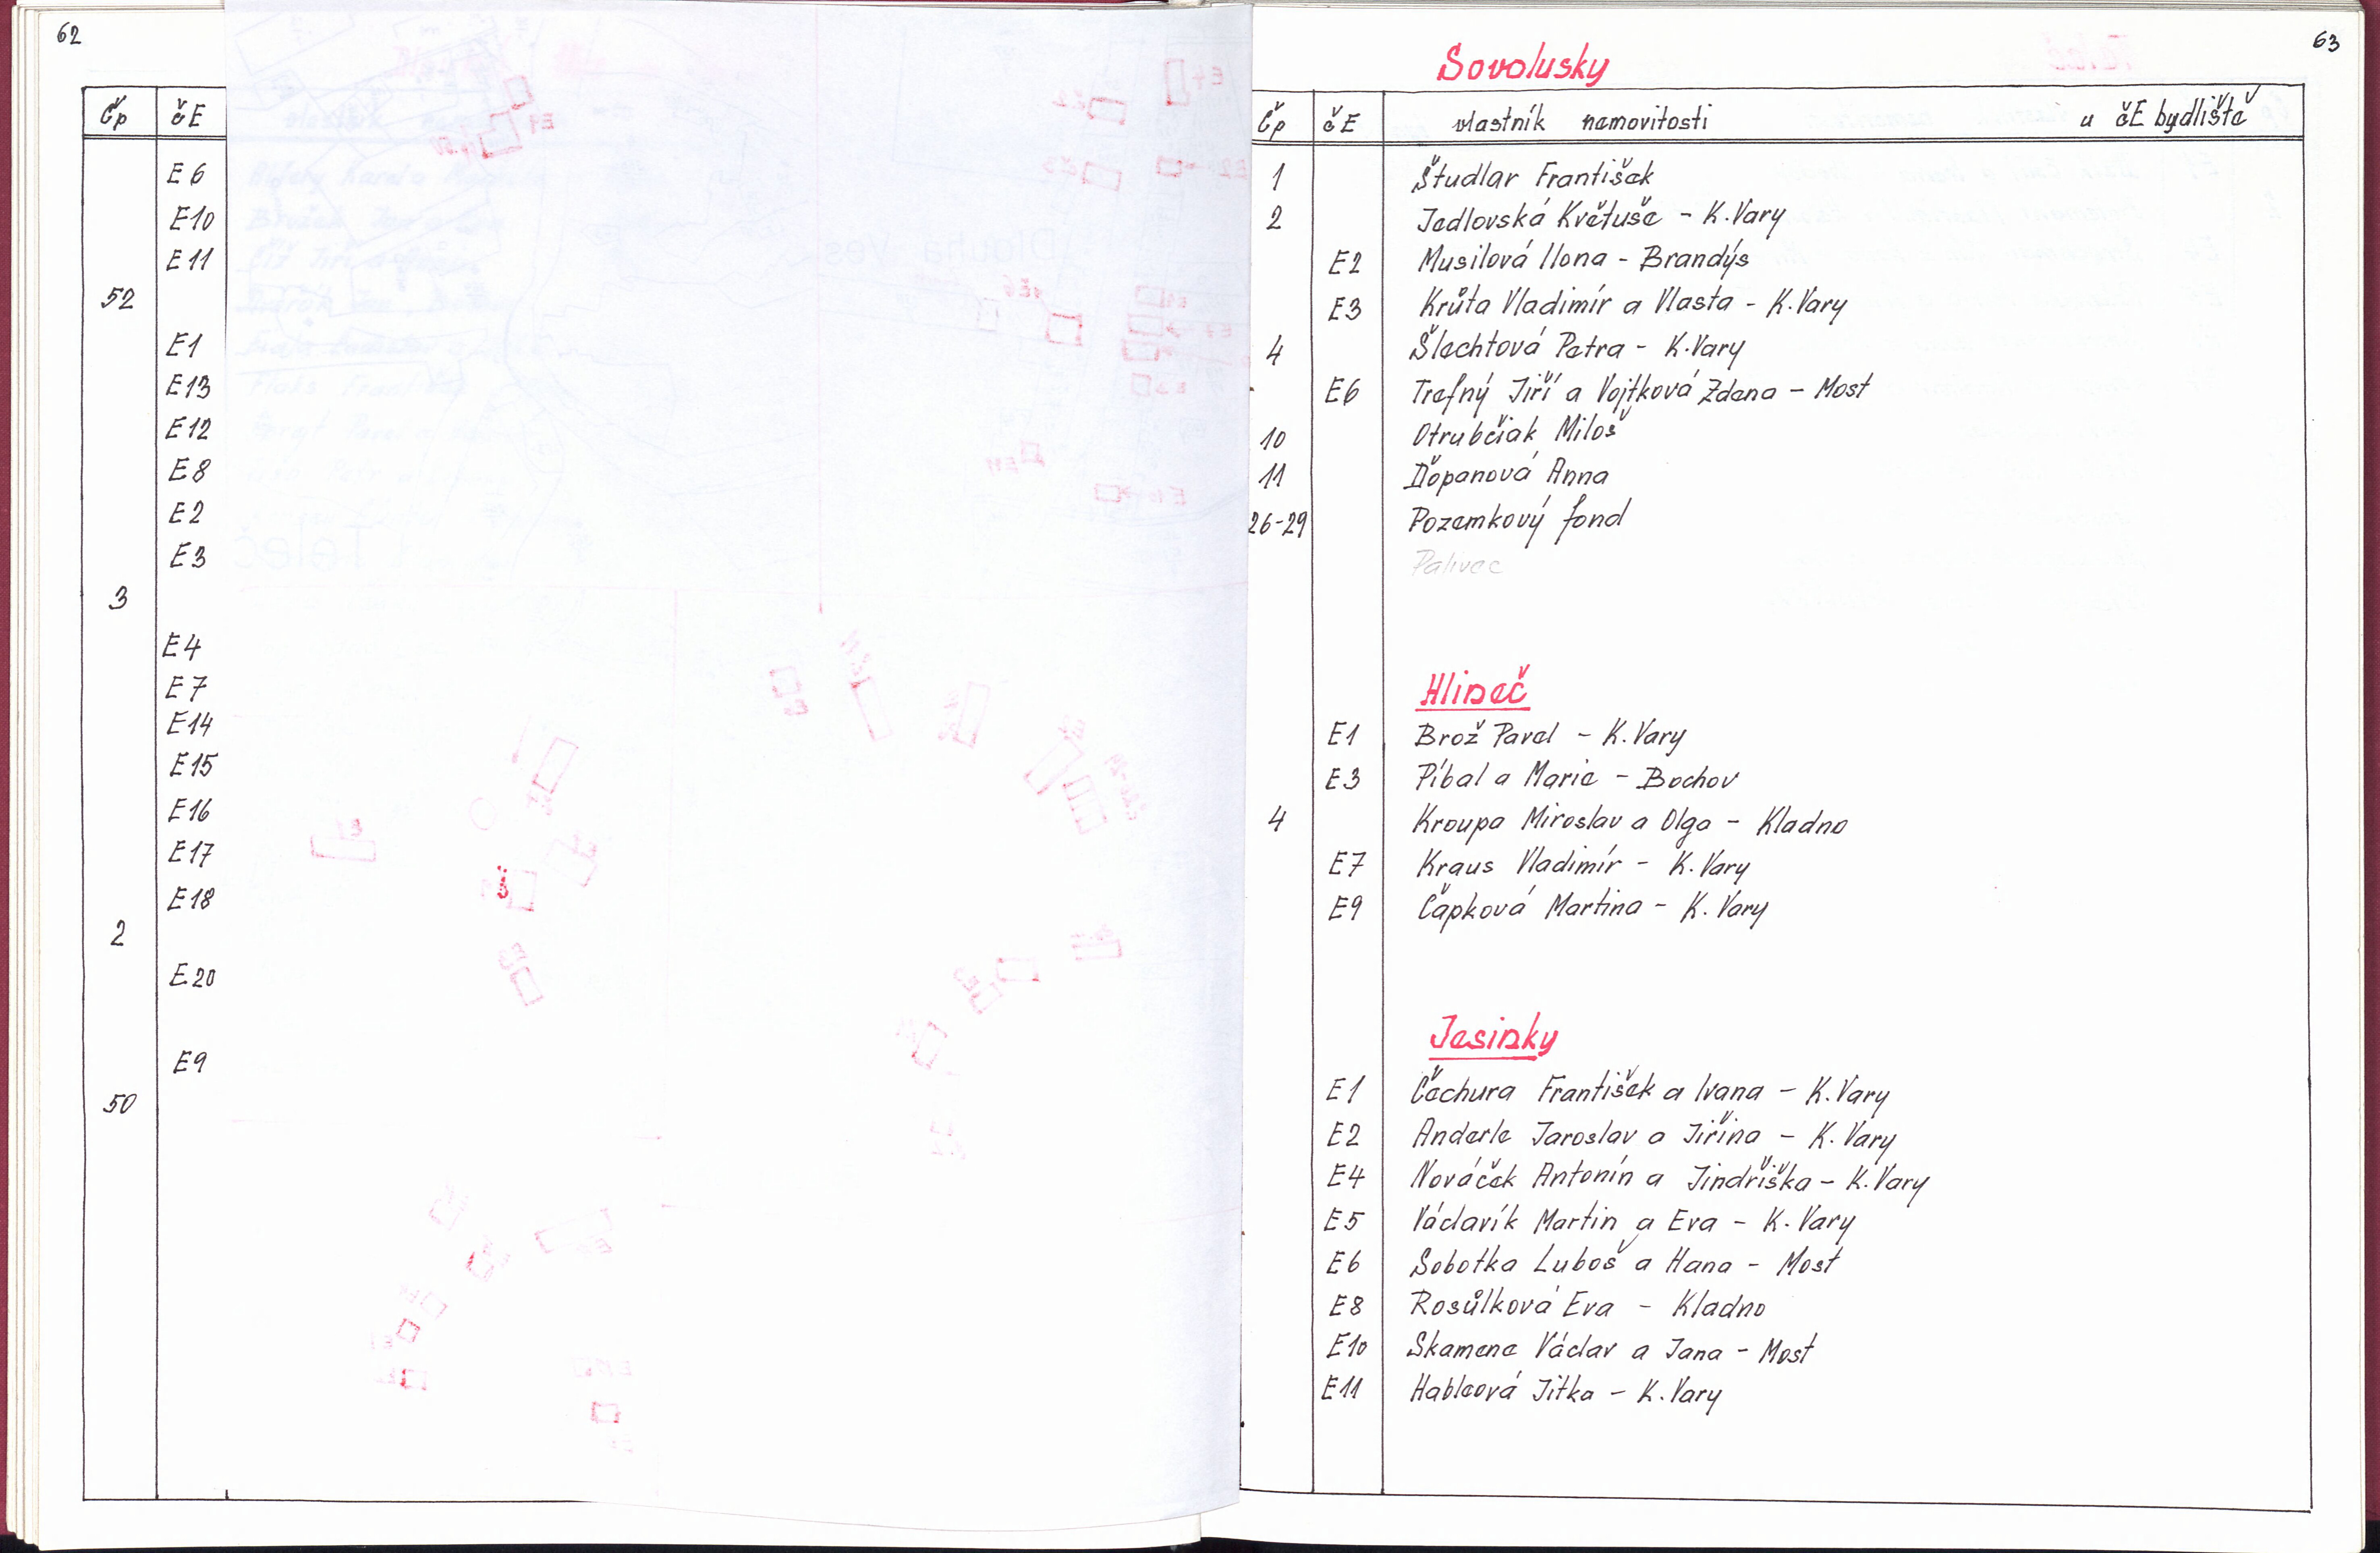 62
Čp čE
E6
E10
E11
52
E1
E13
E12
E8
E2
E3
3
E4
E7
E14
E15
E16
E17
E18
2
E20
E9
50
63
Sovolusky
Čp čE vlastník nemovitosti u čE bydliště
1 Študlar František
2 Jedlovská Květuše - K.Vary
E2 Musilová Ilona - Brandýs
E3 Krůta Vladimír a Vlasta - K.Vary
4 Šlechtová Petra - K.Vary
E6 Trefný Jiří a Vojtková Zdena - Most
10 Otrubčiak Miloš
11 Ďopanová Anna
26-29 Pozemkový fond
Palivec
Hlineč
E1 Brož Pavel - K.Vary
E3 Píbal a Marie - Bochov
4 Kroupa Miroslav a Olga - Kladno
E7 Kraus Vladimír - K.Vary
E9 Čapková Martina - K.Vary
Jesínky
E1 Čechura František a Ivana - K.Vary
E2 Anderle Jaroslav a Jiřina - K.Vary
E4 Nováček Antonín a Jindřiška - K.Vary
E5 Václavík Martin a Eva - K.Vary
E6 Sobotka Luboš a Hana - Most
E8 Rosůlková Eva - Kladno
E10 Skamene Václav a Jana - Most
E11 Hableová Jitka - K.Vary